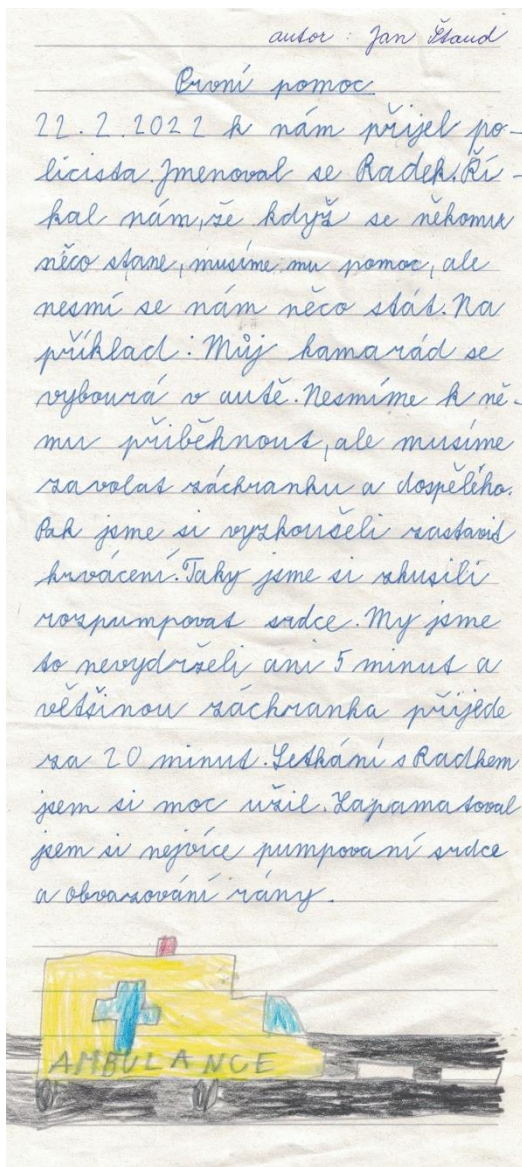 autor : Jan Štaud
První pomoc
22.2.2022 k nám přijel po-
licista. Jmenoval se Radek. Ří-
kal nám, že když se někomu
něco stane, musíme mu pomoc, ale
nesmí se nám něco stát. Na
příklad : Můj kamarád se
vybourá v autě. Nesmíme k ně-
mu přiběhnout, ale musíme
zavolat záchranku a dospělého.
Pak jsme si vyzkoušeli zastavit
krvácení. Taky jsme si zkusili
rozpumpovat srdce. My jsme
to nevydrželi ani 5 minut a
většinou záchranka přijede
za 20 minut. Setkání s Radkem
jsem si moc užil. Zapamatoval
jsem si nejvíce pumpovaní srdce
a obvazování rány.
AMBULANCE